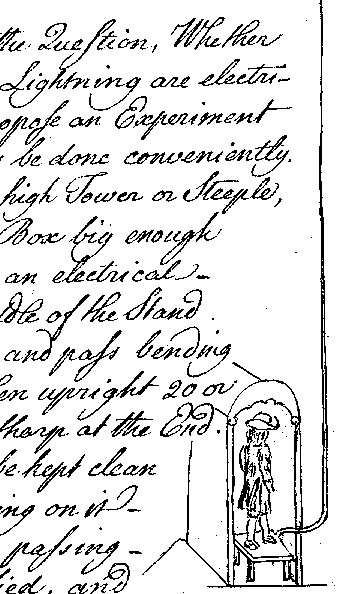 the Question, Whether
Lightning are electri-
opose an Experiment
be done conveniently.
high Tower or Steeple,
Box big enough
an electrical-
dle of the Stand
and pass bending
en upright 20 or
sharp at the End.
be kept clean
ing on it-
passing-
ied, and